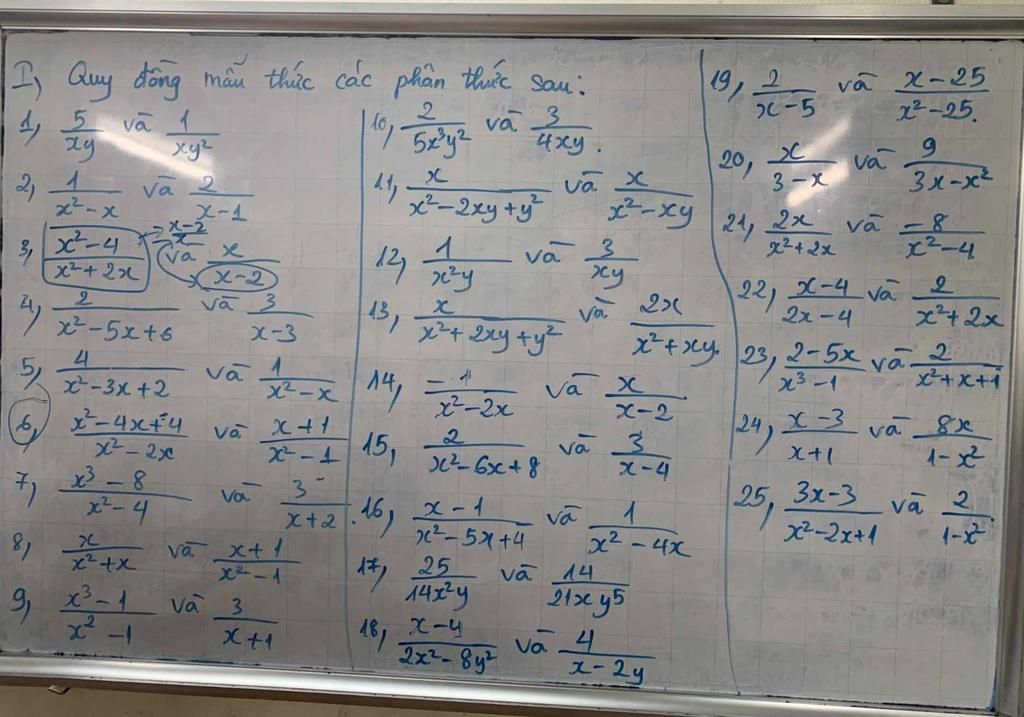 I, Quy đồng mẫu thức các phân thức sau:
1, 5/xy và 1/xy²
2, 1/(x²-x) và 2/(x-1)
3, (x²-4)/(x²+2x) → (x-2)/x và x/(x-2)
4, 2/(x²-5x+6) và 3/(x-3)
5, 4/(x²-3x+2) và 1/(x²-x)
6, (x²-4x+4)/(x²-2x) và (x+1)/(x²-1)
7, (x³-8)/(x²-4) và 3/(x+2)
8, x/(x²+x) và (x+1)/(x²-1)
9, (x³-1)/(x²-1) và 3/(x+1)
10, 2/(5x³y²) và 3/(4xy).
11, x/(x²-2xy+y²) và x/(x²-xy)
12, 1/(x²y) và 3/(xy)
13, x/(x²+2xy+y²) và 2x/(x²+xy)
14, -1/(x²-2x) và x/(x-2)
15, 2/(x²-6x+8) và 3/(x-4)
16, (x-1)/(x²-5x+4) và 1/(x²-4x)
17, 25/(14x²y) và 14/(21xy⁵)
18, (x-4)/(2x²-8y²) và 4/(x-2y)
19, 2/(x-5) và (x-25)/(x²-25).
20, x/(3-x) và 9/(3x-x²)
21, 2x/(x²+2x) và -8/(x²-4)
22, (x-4)/(2x-4) và 2/(x²+2x)
23, (2-5x)/(x³-1) và 2/(x²+x+1)
24, (x-3)/(x+1) và 8x/(1-x²)
25, (3x-3)/(x²-2x+1) và 2/(1-x²)